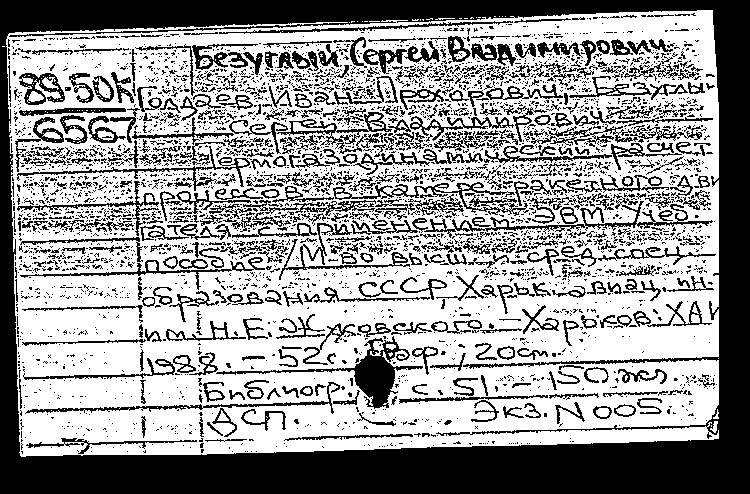 Безуглый, Сергей Владимирович
89-50К
6567
Голдаев, Иван Прохорович, Безуглый
Сергей Владимирович
Термогазодинамический расчет
процессов в камере ракетного дви
гателя с применением ЭВМ: Учеб.
пособие / М-во высш. и сред. спец.
образования СССР, Харьк. авиац. ин-т
им. Н.Е. Жуковского. – Харьков: ХАИ
1988. – 52 с.: граф.; 20 см.
Библиогр.: с. 51. – 150 экз.
ДСП. Экз. N 005.